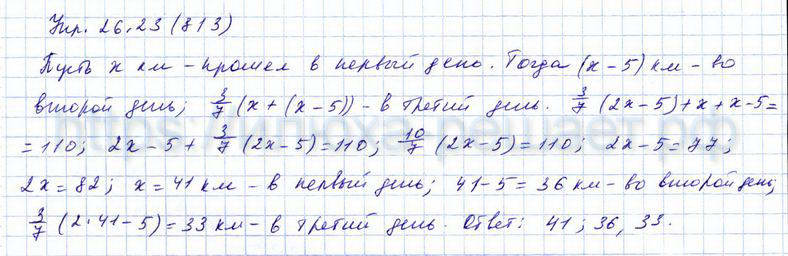 Упр. 26.23 (813)
Пусть x км – прошел в первый день. Тогда (x – 5) км – во
второй день; 3/7 (x + (x – 5)) – в третий день. 3/7 (2x – 5) + x + x – 5 =
= 110; 2x – 5 + 3/7 (2x – 5) = 110; 10/7 (2x – 5) = 110; 2x – 5 = 77;
2x = 82; x = 41 км – в первый день; 41 – 5 = 36 км – во второй день;
3/7 (2·41 – 5) = 33 км – в третий день. Ответ: 41; 36, 33.